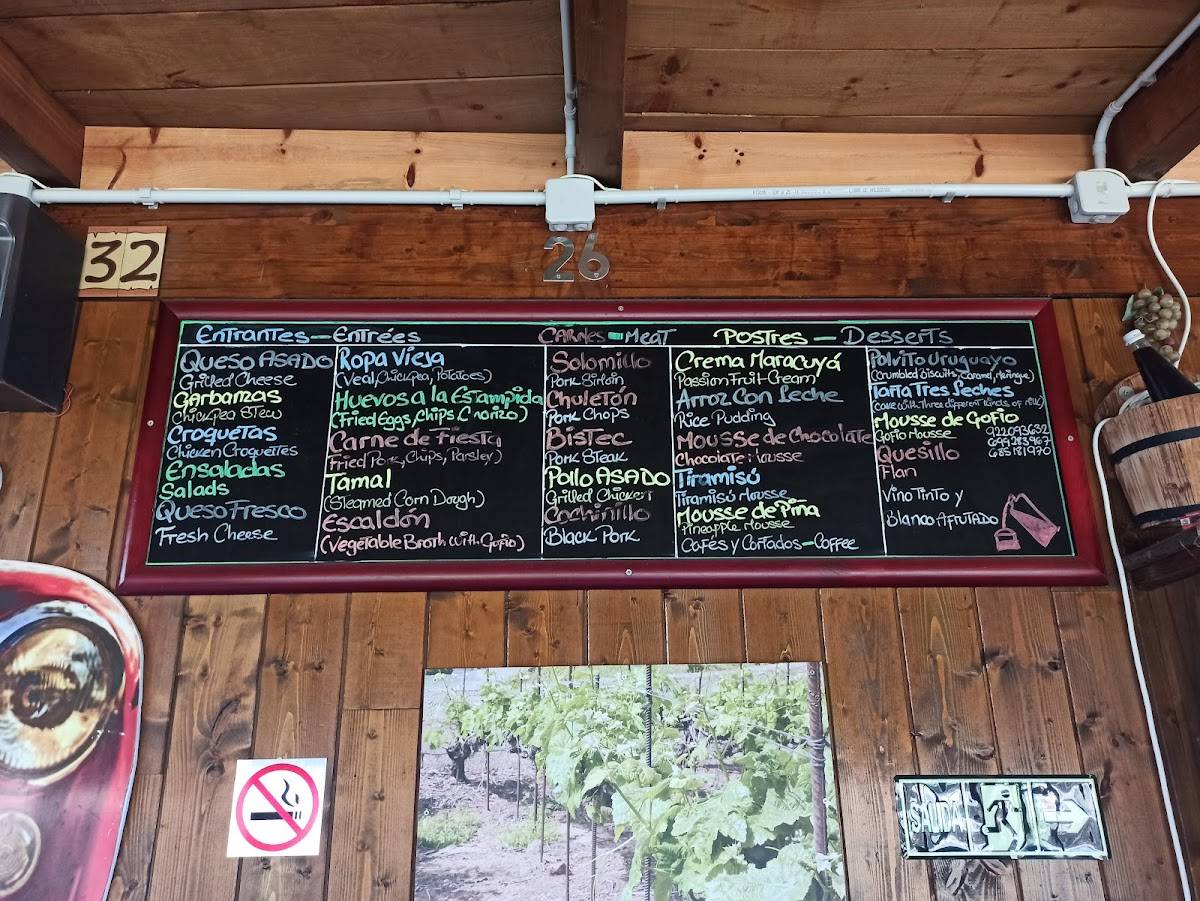 32
26
Entrantes — Entrées
Queso Asado
Grilled Cheese
Garbanzas
Chickpea Stew
Croquetas
Chicken Croquettes
Ensaladas
Salads
Queso Fresco
Fresh Cheese
Ropa Vieja
(Veal, Chickpea, Potatoes)
Huevos a la Estampida
(Fried Eggs, Chips, Chorizo)
Carne de Fiesta
Fried Pork, Chips, Parsley)
Tamal
(Steamed Corn Dough)
Escaldón
(Vegetable Broth with Gofio)
Carnes — Meat
Solomillo
Pork Sirloin
Chuletón
Pork Chops
Bistec
Pork Steak
Pollo Asado
Grilled Chicken
Cochinillo
Black Pork
Postres — Desserts
Crema Maracuyá
Passion Fruit Cream
Arroz Con Leche
Rice Pudding
Mousse de Chocolate
Chocolate Mousse
Tiramisú
Tiramisú Mousse
Mousse de Piña
Pineapple Mousse
Cafés y Cortados — Coffee
Polvito Uruguayo
(Crumbled biscuits, caramel, meringue)
Tarta Tres Leches
(cake with three different kinds of milk)
Mousse de Gofio
Gofio Mousse
922093632
699283967
685181970
Quesillo
Flan
Vino Tinto y
Blanco Afrutado
SALIDA